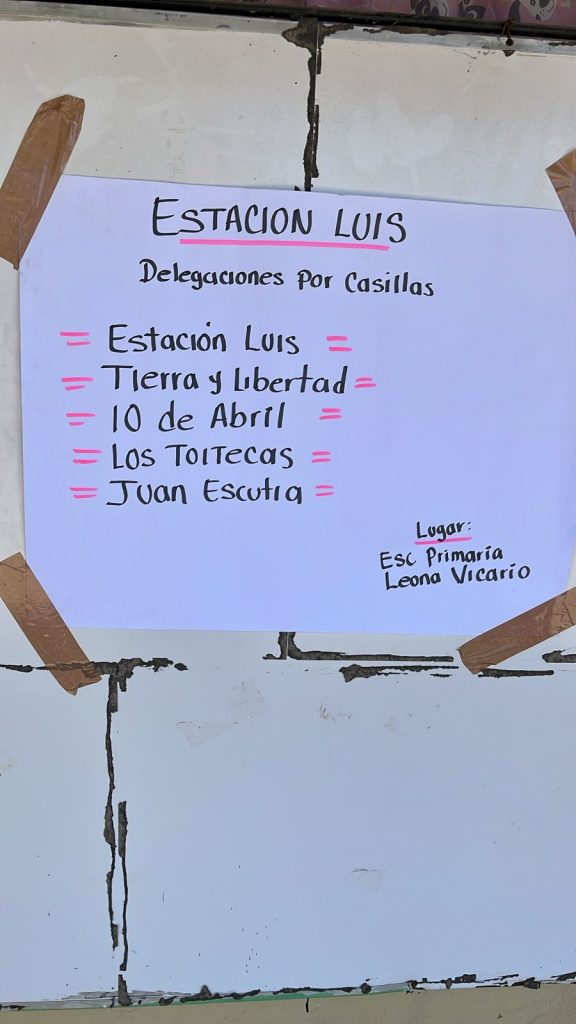 ESTACION LUIS
Delegaciones Por Casillas
= Estación Luis =
= Tierra y Libertad =
= 10 de Abril =
= Los Toltecas =
= Juan Escutia =
Lugar:
Esc Primaria
Leona Vicario